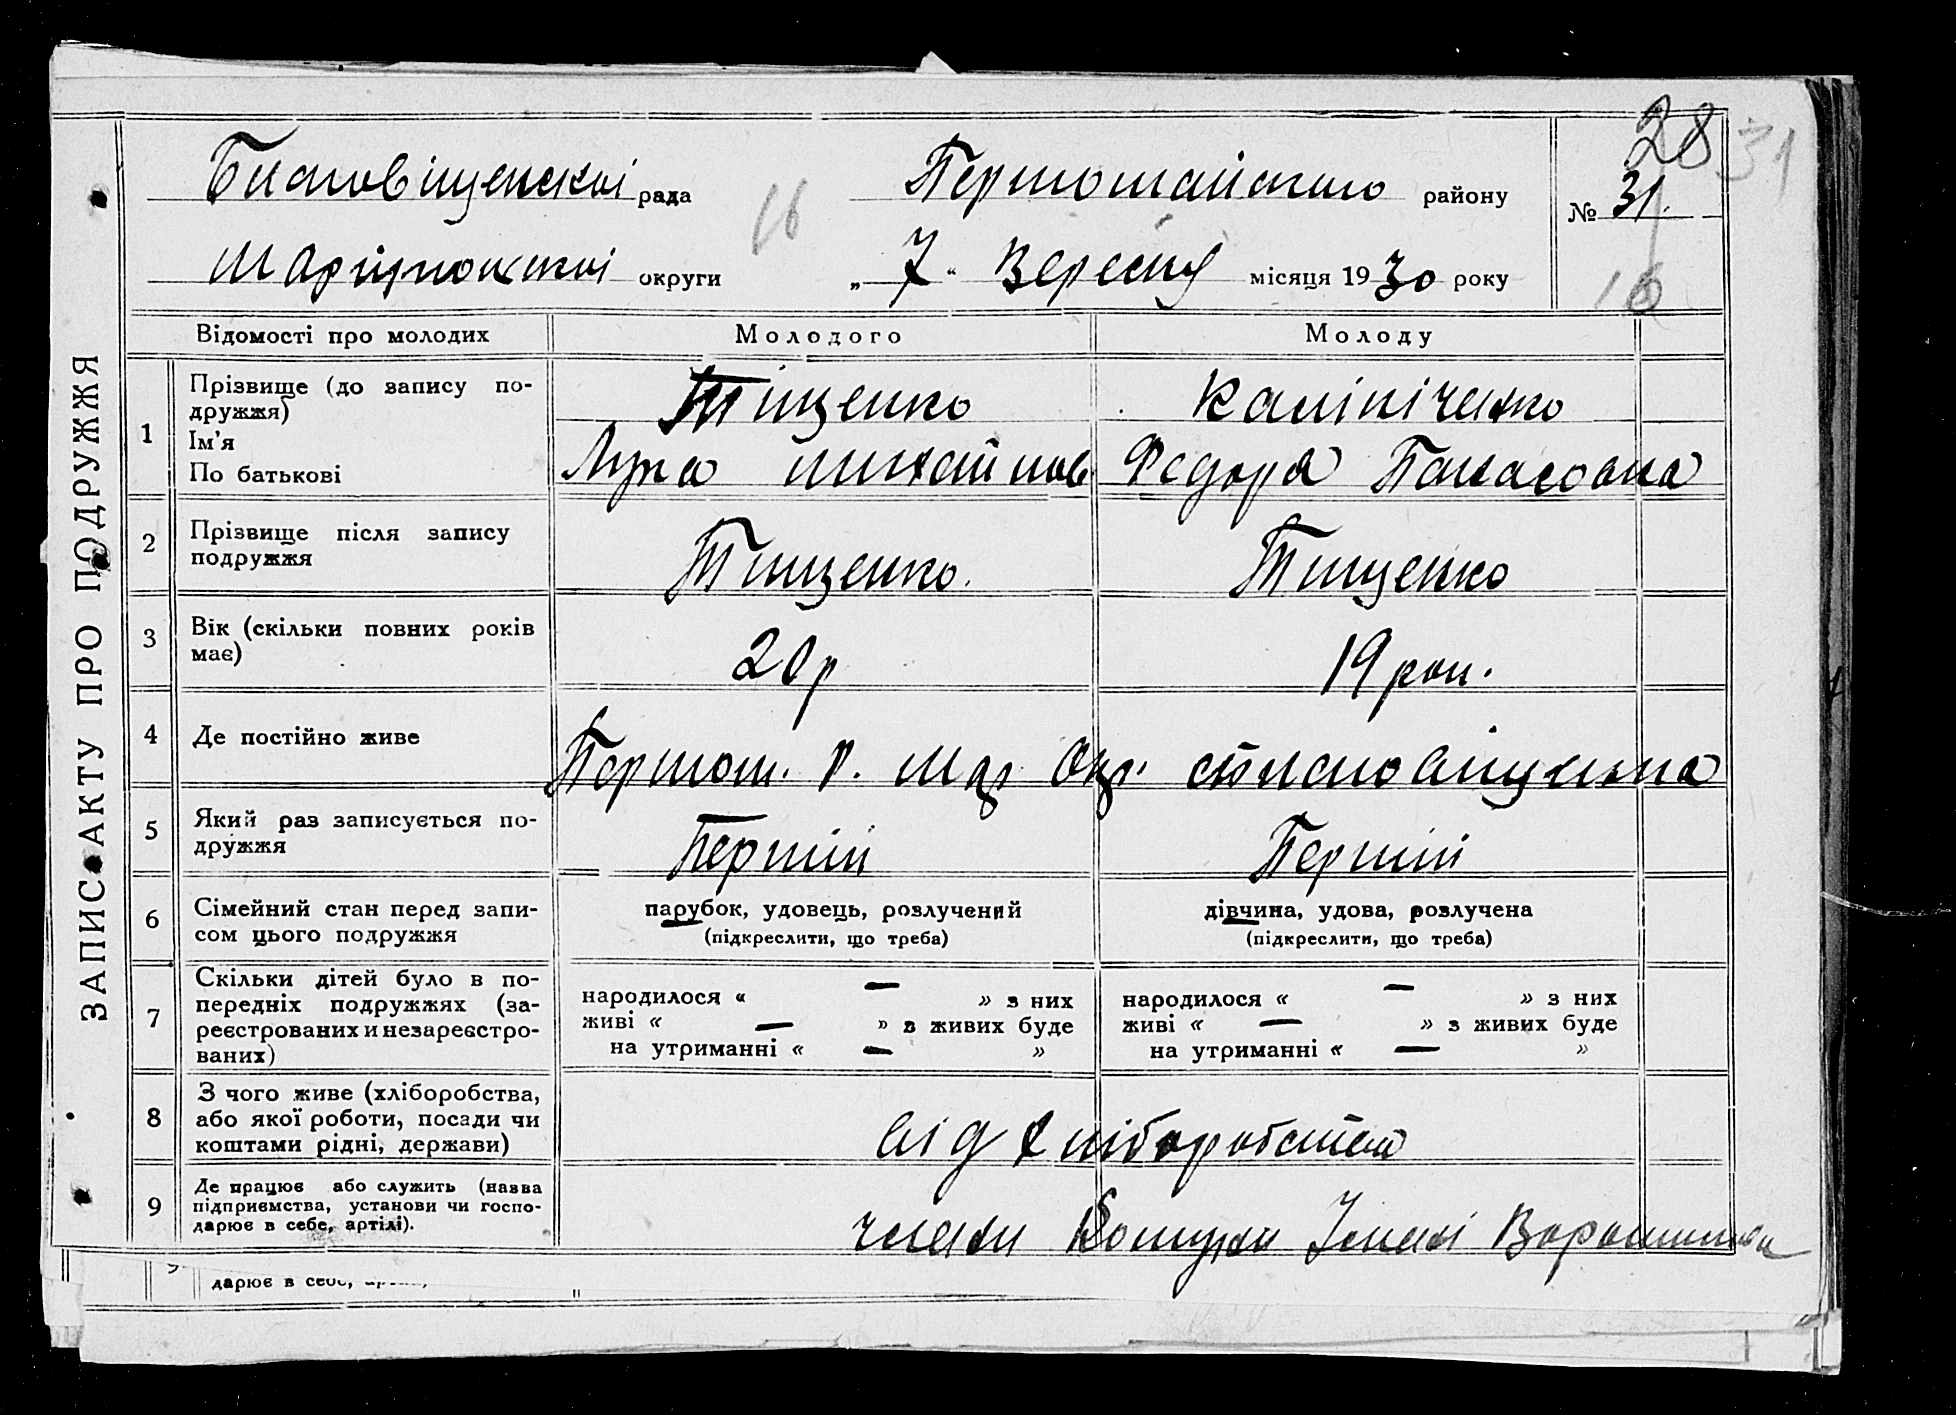 28 31
Благовіщенскої рада Першомайского району № 31.
16
Маріупольскої округи „ 7 “ Вересня місяця 1930 року
16
ЗАПИС АКТУ ПРО ПОДРУЖЖЯ
Відомості про молодих Молодого Молоду
1 Прізвище (до запису по-
дружжя) Тищенко Калініченко
Ім’я
По батькові Лука Михайлов Федора Панасовна
2 Прізвище після запису
подружжя Тищенко. Тищенко
3 Вік (скільки повних років
має) 20 р 19 рок.
4 Де постійно живе Першом. р. Мар Окр.
5 Який раз записується по-
дружжя Першій Першій
6 Сімейний стан перед запи-
сом цього подружжя
парубок, удовець, розлучений
(підкреслити, що треба)
дівчина, удова, розлучена
(підкреслити, що треба)
7 Скільки дітей було в по-
передніх подружжях (за-
реєстрованих и незареєстро-
ваних)
народилося « — » з них
живі « — » з живих буде
на утриманні « — »
народилося « — » з них
живі « — » з живих буде
на утриманні « — »
8 З чого живе (хліборобства,
або якої роботи, посади чи
коштами рідні, держави)
від хліборобства
9 Де працює або служить (назва
підприємства, установи чи госпо-
дарює в себе, артілі).
члени Комуни Імені Ворошилова
дарює в себе,